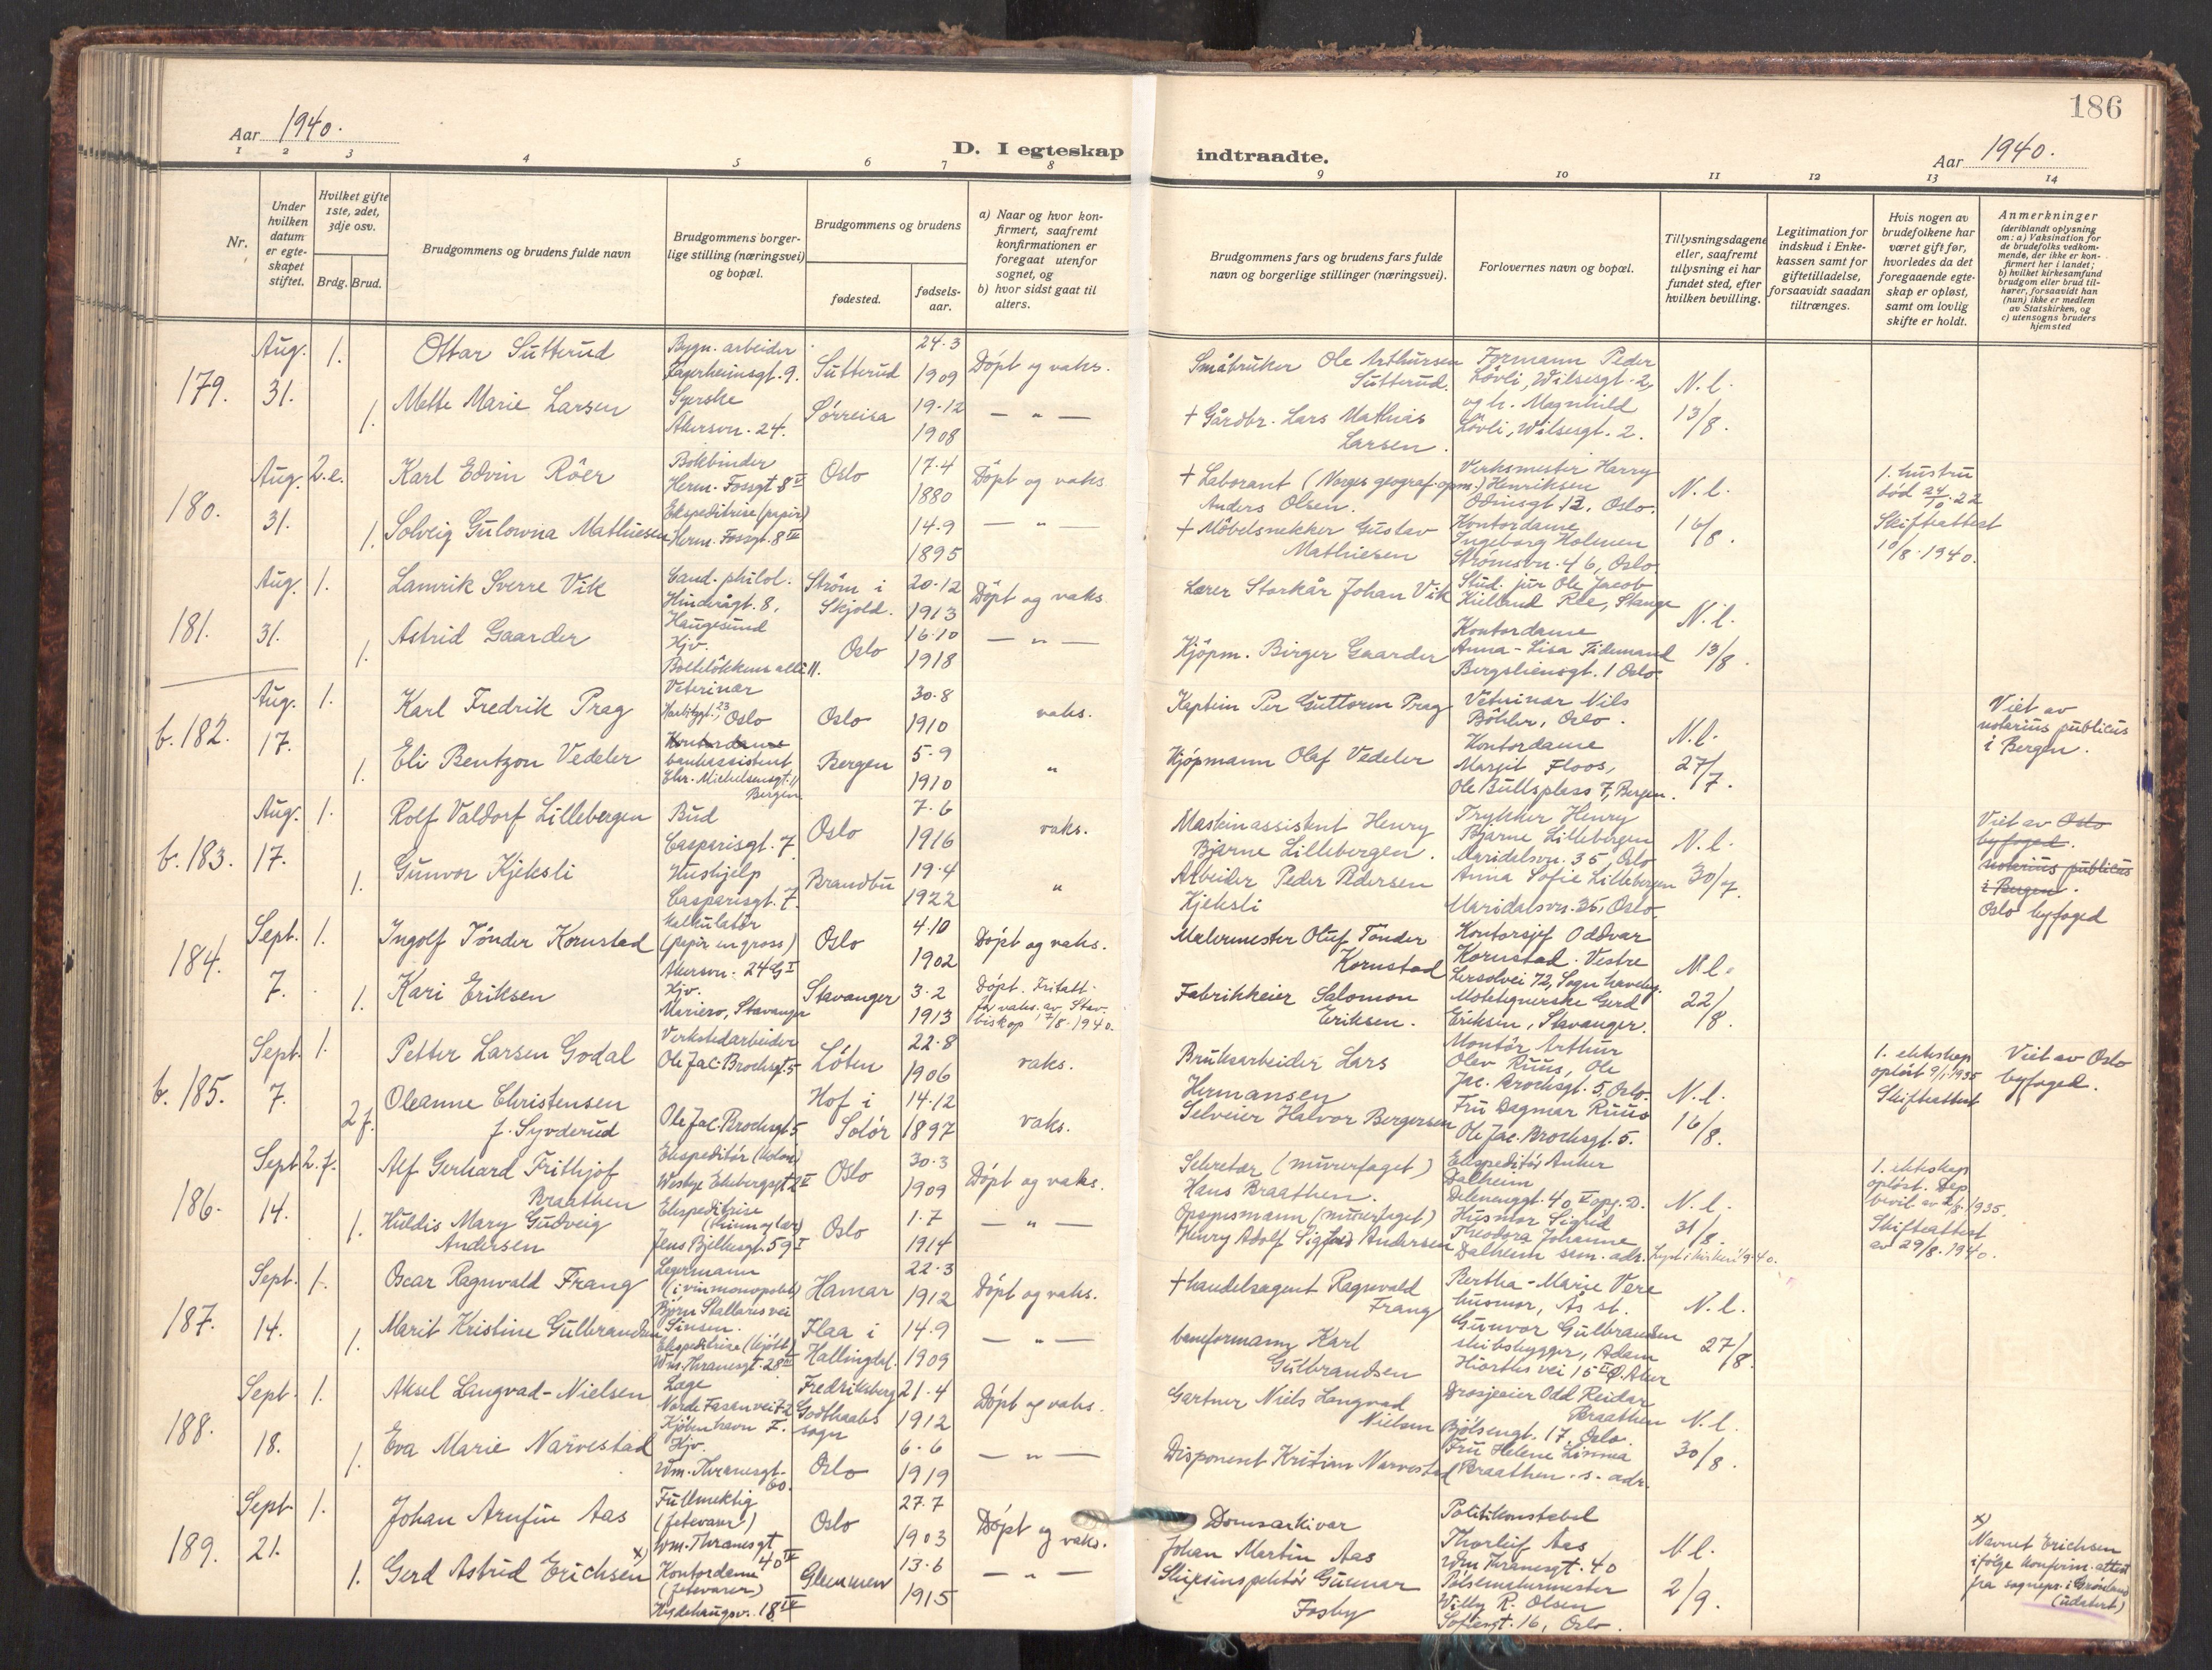 186
Aar 1940.
D. I egteskap indtraadte.
Aar 1940.
1 2 3 4 5 6 7 8 9 10 11 12 13 14
Nr.
Under
hvilken
datum
er egte-
skapet
stiftet.
Hvilket gifte
1ste, 2det,
3dje osv.
Brdg. Brud.
Brudgommens og brudens fulde navn
Brudgommens borger-
lige stilling (næringsvei)
og bopæl.
Brudgommens og brudens
fødested.
fødsels-
aar.
a) Naar og hvor kon-
firmert, saafremt
konfirmationen er
foregaat utenfor
sognet, og
b) hvor sidst gaat til
alters.
Brudgommens fars og brudens fars fulde
navn og borgerlige stillinger (næringsvei).
Forlovernes navn og bopæl.
Tillysningsdagene
eller, saafremt
tillysning ei har
fundet sted, efter
hvilken bevilling.
Legitimation for
indskud i Enke-
kassen samt for
giftetilladelse,
forsaavidt saadan
tiltrænges.
Hvis nogen av
brudefolkene har
været gift før,
hvorledes da det
foregaaende egte-
skap er opløst,
samt om lovlig
skifte er holdt.
Anmerkninger
(deriblandt oplysning
om: a) Vaksination for
de brudefolks vedkom-
mende, der ikke er kon-
firmert her i landet;
b) hvilket kirkesamfund
brudgom eller brud til-
hører, forsaavidt han
(hun) ikke er medlem
av Statskirken, og
c) utensogns bruders
hjemsted
179.
Aug.
31.
1.
Ottar Sutterud
Bygn. arbeider
Fagerheimsgt. 9.
Sutterud
24.3
1909
Döpt og vaks.
Småbruker Ole Arthursen
Sutterud.
Formann Peder
Lövli, Wilsesgt. 2,
N.l.
13/8.
1.
Mette Marie Larsen
Syerske
Akersvn. 24.
Sørreisa
19.12
1908
— " —
+ Gårdbr. Lars Mathias
Larsen.
og h. Magnhild
Lövli, Wilsesgt. 2.
180.
Aug.
31.
2.e.
Karl Edvin Röer
Bokbinder
Herm. Fossgt 8 IV
Oslo
17.4
1880
Döpt og vaks
+ Laborant (Norges geograf. opm.)
Anders Olsen.
Verksmester Harry
Henriksen
Odinsgt 12. Oslo.
N.l.
16/8.
1. hustru
död 24/10.22
Skifteattest
10/8.1940.
1.
Solveig Gulowna Mathiesen
Ekspeditrise (papir)
Herm. Fossgt. 8 IV
14.9
1895
— " —
+ Möbelsnekker Gustav
Mathiesen
Kontordame
Ingeborg Holmen
Strømsvn. 46, Oslo.
181.
Aug.
31.
1.
Lamrik Sverre Vik
Cand. philol.
8,
Haugesund
Ström i
Skjold.
20.12
1913
Döpt og vaks.
Lærer Storkår Johan Vik
Stud. jur Ole Jacob
Kielland Ree, Stange
N.l.
13/8.
1.
Astrid Gaarder
Hjv.
Bolteløkkens allé 11.
Oslo
16.10
1918
— " —
Kjöpm. Birger Gaarder
Kontordame
Anna-Lisa Tidemand
Bergsliensgt. 1 Oslo.
b. 182.
Aug.
17.
1.
Karl Fredrik Prag
Veterinær
Harbitzgt. 23, Oslo
Oslo
30.8
1910
vaks.
Kaptein Per Guttorm Prag
Veterinær Nils
Böhler, Oslo.
N.l.
27/7.
Viet av
notarius publicus
i Bergen.
1.
Eli Bentzon Vedeler
Kontordame
bankassistent
Chr. Michelsensgt. 11
Bergen
Bergen
5.9
1910
"
Kjöpmann Olaf Vedeler
Kontordame
Margit Floos,
Ole Bullsplass 7, Bergen.
b. 183.
Aug.
17.
1.
Rolf Valdorf Lillebergen
Bud
Casparisgt. 7.
Oslo
7.6
1916
vaks.
Maskinassistent Henry
Bjarne Lillebergen.
Trykker Henry
Bjarne Lillebergen
Maridalsvn. 35, Oslo
N.l.
30/7.
Viet av Oslo
byfoged.
notarius publicus
i Bergen.
Oslo byfoged
1.
Gunvor Kjeksli
Hushjelp
Casparisgt. 7.
Brandbu
19.4
1922
"
Arbeider Peder Pedersen
Kjeksli
Anna Sofie Lillebergen
Maridalsvn. 35, Oslo.
184.
Sept.
7.
1.
Ingolf Tönder Kornstad
Kalkulatør
(papir en gross)
Akersvn. 24 G I
Oslo
4.10
1902
Döpt og vaks.
Malermester Oluf Tönder
Kornstad
Kontorsjef Oddvar
Kornstad. Vestre
Lersolvei 72, Sogn haveby.
N.l.
22/8.
1.
Kari Eriksen
Hjv.
Mariero, Stavanger
Stavanger
3.2
1913
Döpt. Fritatt
for vaks. av Stav.
biskop 17/8.1940.
Fabrikkeier Salomon
Eriksen.
Motetegnerske Gerd
Eriksen, Stavanger.
b. 185.
Sept.
7.
1.
Petter Larsen Godal
Verkstedarbeider
Ole Jac. Brochsgt. 5
Löten
22.8
1906
vaks.
Bruksarbeider Lars
Hermansen
Montör Arthur
Olav Ruus, Ole
Jac. Brochsgt. 5, Oslo.
N.l.
16/8.
1. ekteskap
oplöst 9/1.1935
Skifteattest
Viet av Oslo
byfoged.
2 f.
Oleanne Christensen
f. Syverud
Ole Jac. Brochsgt. 5
Hof i
Solör
14.12
1897
vaks.
Selveier Halvor Bergersen
Fru Dagmar Ruus
Ole Jac. Brochsgt. 5.
186.
Sept
14.
2.f.
Alf Gerhard Frithjof
Braathen
Ekspeditör (kolon.)
Westye Ekebergsgt. 2 IV
Oslo
30.3
1909
Döpt og vaks.
Sekretær (murerfaget)
Hans Braathen.
Ekspeditör Anker
Dalheim
Delenenggt. 40 V opg. D.
N.l.
31/8.
1. ekteskap
oplöst. Dep.
bevil. av 2/8.1935.
Skifteattest
av 29/8.1940.
1.
Huldis Mary Gudveig
Andersen
Ekspeditrise
Jens Bjelkesgt. 59 I
Oslo
1.7
1914
— " —
Opsynsmann (murerfaget)
Henry Adolf Sigfred Andersen
Husmor Sigrid
Theodora Johanne
Dalheim sam. adr.
Lyst i kirken 1/9.40.
187.
Sept.
14.
1.
Oscar Ragnvald Frang
Lagermann
(i vinmonopolet)
Björn Stallaresvei
Sinsen.
Hamar
22.3
1912
Döpt og vaks.
+ handelsagent Ragnvald
Frang
Bertha-Marie Vere
husmor, Ås st.
N.l.
27/8.
1.
Marit Kristine Gulbrandsen
Ekspeditrise (kjött)
Wm. Thranesgt. 28 III
Flaa i
Hallingdal.
14.9
1909
— " —
baneformann Karl
Gulbrandsen
Gunvor Gulbrandsen
skibsbygger, Adam
Hiorths vei 15 II Ø. Aker
188.
Sept.
18.
1.
Aksel Langvad-Nielsen
Læge
Nordre Fasanvei 72
Kjöbenhavn F.
Fredriksberg
Godthaabs
sogn
21.4
1912
Döpt og vaks.
Gartner Niels Langvad
Nielsen
Drosjeeier Odd Reidar
Braathen
Bjölsengt. 17, Oslo
N.l.
30/8.
1.
Eva Marie Narvestad
Hjv.
Wm. Thranesgt.
60.
Oslo
6.6
1919
— " —
Disponent Kristian Narvestad
Fru Helene Linnéa
Braathen. s. adr.
189.
Sept
21.
1.
Johan Arnfin Aas
Fullmektig
(fetevarer)
Wm. Thranesgt
40 IV
Oslo
27.7
1903
Döpt og vaks.
Domsarkivar
Johan Martin Aas
Politikonstabel
Thorleif Aas
Wm Thranesgt. 40
N.l.
2/9.
x)
Navnet Erichsen
ifölge konfirm. attest
fra sogneps. i Grönland
(udatert)
1.
Gerd Astrid Erichsen x)
Kontordame
(fetevarer)
Hydehaugsv. 18 IV
Glemmen
13.6
1915
— " —
Skipsinspektör Gunnar
Fosby
Pölsemakermester
Willy R. Olsen
Sofiesgt. 16, Oslo.